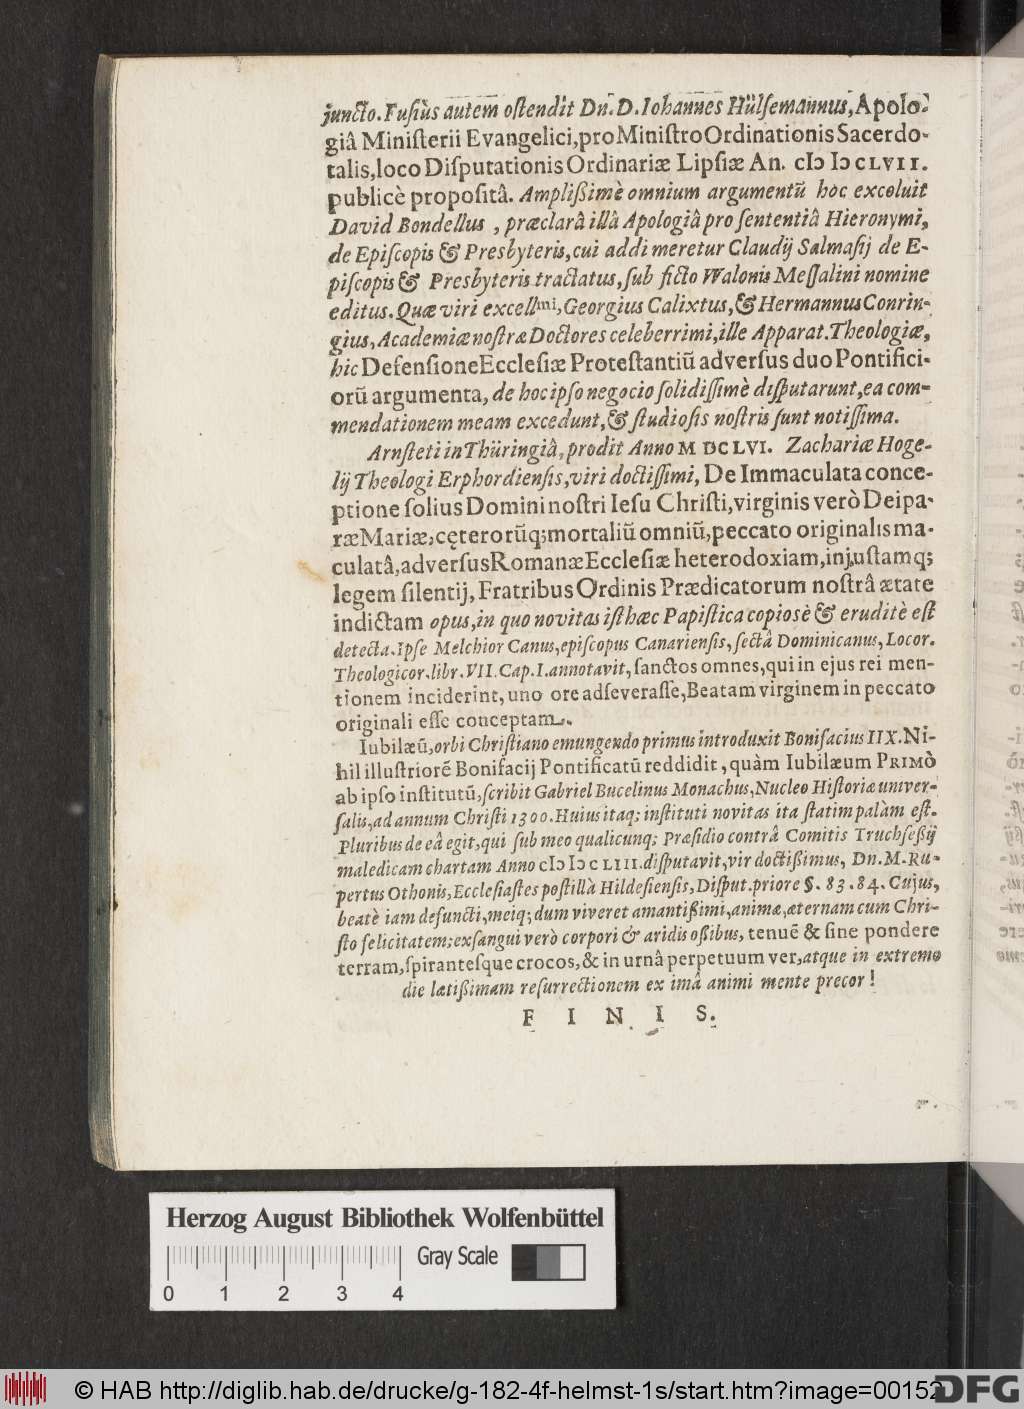 juncto. Fusiùs autem oſtendit Dn. D. Iohannes Hülſemannus, Apolo-
giâ Miniſterii Evangelici, pro Miniſtro Ordinationis Sacerdo-
talis, loco Diſputationis Ordinariæ Lipſiæ An. cIↄ Iↄ CLVII.
publicè propoſitâ. Amplißimè omnium argumentū hoc excoluit
David Bondellus, præclarâ illâ Apologiâ pro ſententiâ Hieronymi,
de Epiſcopis & Presbyteris, cui addi meretur Claudij Salmaſij de E-
piſcopis & Presbyteris tractatus, ſub ficto Walonis Meſſalini nomine
editus. Quæ viri excellmi, Georgius Calixtus, & Hermannus Conrin-
gius, Academiæ noſtræ Doctores celeberrimi, ille Apparat. Theologiæ,
hic Defenſione Eccleſiæ Proteſtantiū adverſus duo Pontifici-
orū argumenta, de hoc ipſo negocio ſolidiſſimè diſputarunt, ea com-
mendationem meam excedunt, & ſtudioſis noſtris ſunt notiſſima.
Arnſteti in Thüringiâ, prodit Anno M DC LVI. Zachariæ Hoge-
lij Theologi Erphordienſis, viri doctiſſimi, De Immaculata conce-
ptione ſolius Domini noſtri Ieſu Chriſti, virginis verò Deipa-
ræ Mariæ, cęterorūq; mortaliū omniū, peccato originalis ma-
culatâ, adverſus Romanæ Eccleſiæ heterodoxiam, injuſtamq;
legem ſilentij, Fratribus Ordinis Prædicatorum noſtrâ ætate
indictam opus, in quo novitas iſthæc Papiſtica copiosè & eruditè eſt
detecta. Ipſe Melchior Canus, epiſcopus Canarienſis, ſectâ Dominicanus, Locor.
Theologicor. libr. VII. Cap. I. annotavit, ſanctos omnes, qui in ejus rei men-
tionem inciderint, uno ore adſeveraſſe, Beatam virginem in peccato
originali eſſe conceptam.
Iubilæū, orbi Chriſtiano emungendo primus introduxit Bonifacius IIX. Ni-
hil illuſtriorē Bonifacij Pontificatū reddidit, quàm Iubilæum PRIMÒ
ab ipſo inſtitutū, ſcribit Gabriel Bucelinus Monachus, Nucleo Hiſtoriæ univer-
ſalis, ad annum Chriſti 1300. Huius itaq; inſtituti novitas ita ſtatim palàm eſt.
Pluribus de eâ egit, qui ſub meo qualicunq; Præſidio contrâ Comitis Truchſeßij
maledicam chartam Anno cIↄ Iↄ CLIII. diſputavit, vir doctißimus, Dn. M. Ru-
pertus Othonis, Eccleſiaſtes poſtillà Hildeſienſis, Diſput. priore §. 83. 84. Cujus,
beatè iam defuncti, meiq; dum viveret amantißimi, animæ, æternam cum Chri-
ſto felicitatem; exſangui verò corpori & aridis oßibus, tenuē & ſine pondere
terram, ſpiranteſque crocos, & in urnâ perpetuum ver, atque in extremo
die lætißimam reſurrectionem ex imâ animi mente precor!
FINIS.
Herzog August Bibliothek Wolfenbüttel
Gray Scale
0 1 2 3 4
© HAB http://diglib.hab.de/drucke/g-182-4f-helmst-1s/start.htm?image=00152
DFG